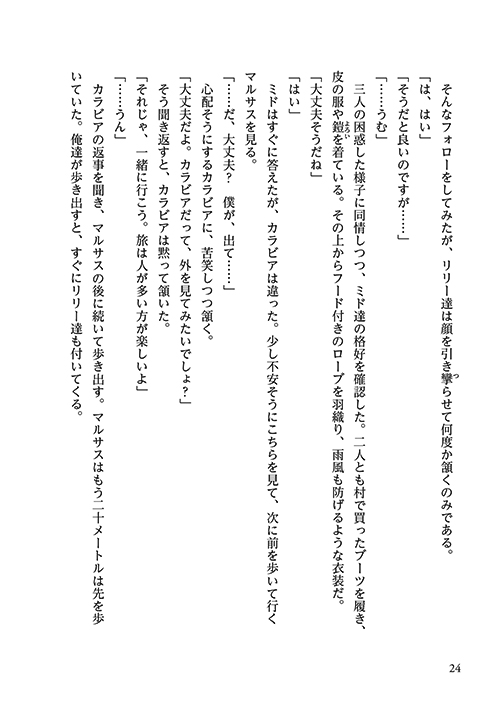 そんなフォローをしてみたが、リリー達は顔を引き攣らせて何度か頷くのみである。
「は、はい」
「そうだと良いのですが……」
「……うむ」
三人の困惑した様子に同情しつつ、ミド達の格好を確認した。二人とも村で買ったブーツを履き、
皮の服や鎧を着ている。その上からフード付きのローブを羽織り、雨風も防げるような衣装だ。
「大丈夫そうだね」
「はい」
ミドはすぐに答えたが、カラビアは違った。少し不安そうにこちらを見て、次に前を歩いて行く
マルサスを見る。
「……だ、大丈夫？　僕が、出て……」
心配そうにするカラビアに、苦笑しつつ頷く。
「大丈夫だよ。カラビアだって、外を見てみたいでしょ？」
そう聞き返すと、カラビアは黙って頷いた。
「それじゃ、一緒に行こう。旅は人が多い方が楽しいよ」
「……うん」
カラビアの返事を聞き、マルサスの後に続いて歩き出す。マルサスはもう二十メートルは先を歩
いていた。俺達が歩き出すと、すぐにリリー達も付いてくる。
24